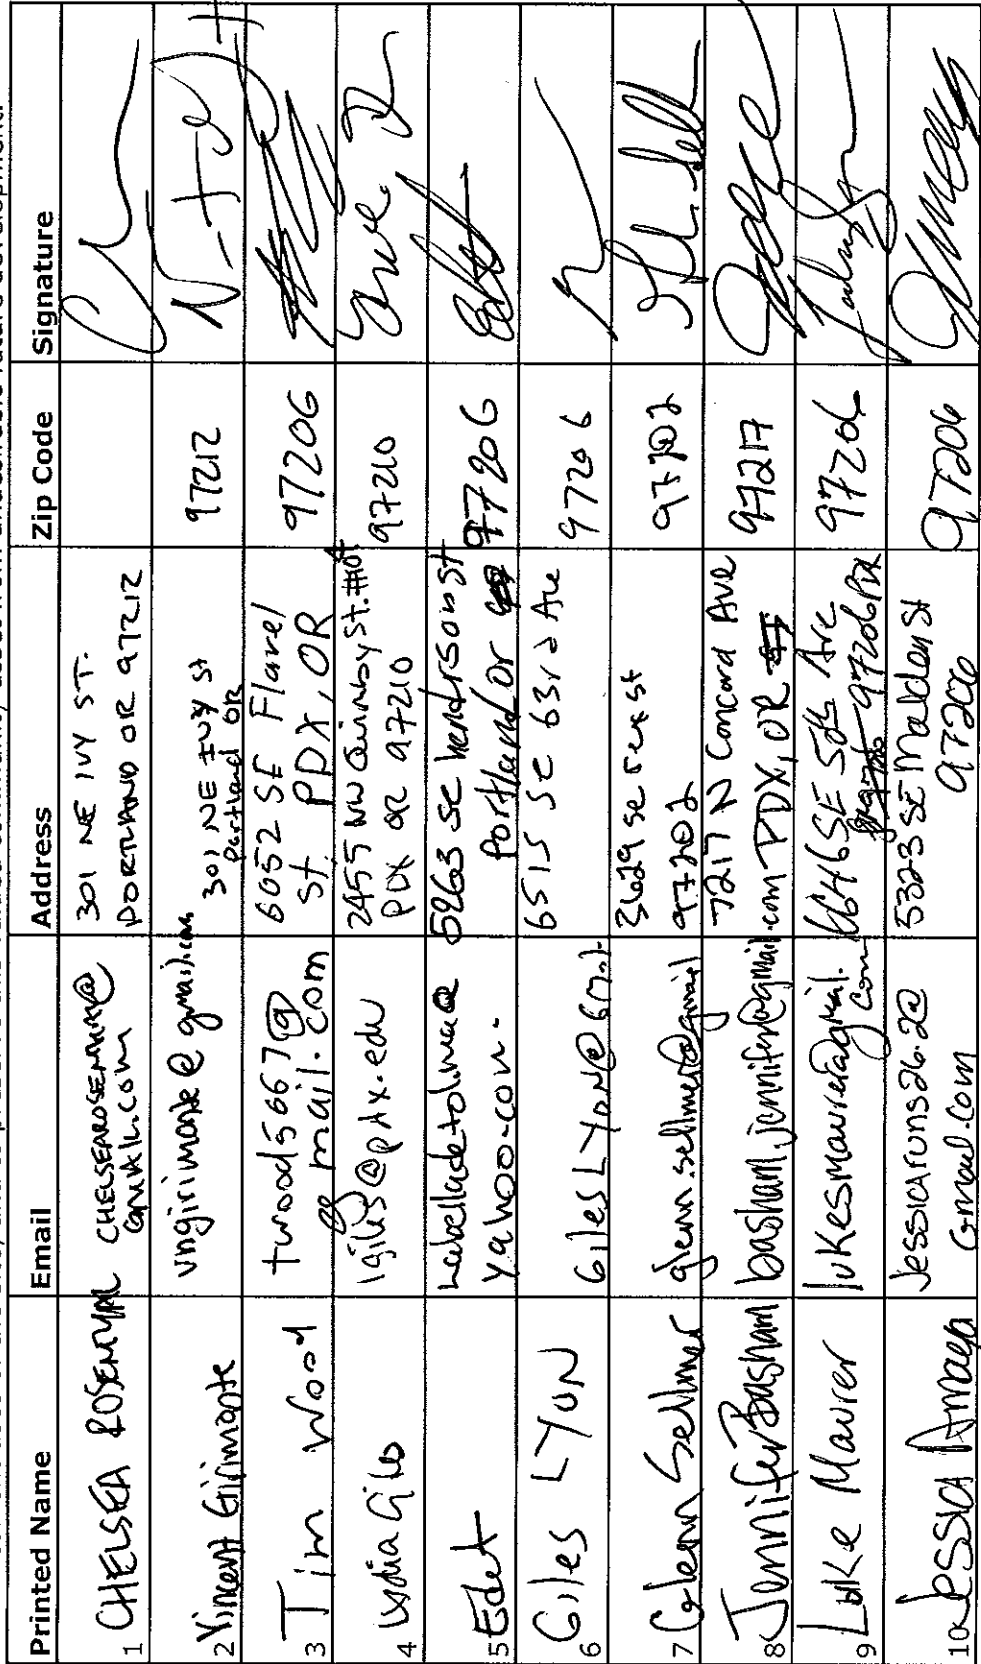 Printed Name Email Address Zip Code Signature
1 CHELSEA ROSENTHAL CHELSEAROSENTHAL@
GMAIL.COM
301 NE IVY ST.
PORTLAND OR 97212
2 Vincent Girimonte vngirimonte@gmail.com
301 NE IVY St
Portland OR
97212
3 Tim Wood twood5667@
gmail.com
6052 SE Flavel
St. PDX, OR
97206
4 Lydia Giles lgiles@pdx.edu
2455 NW Quimby St. #104
PDX OR 97210
97210
5 Edet
yahoo.com
5263 se henderson st
Portland or
97206
6 Giles LYON Giles LYON@Gmail.
6515 SE 63rd Ave
97206
7 Glenn Sellmer glenn.sellmer@gmail
3629 se rex st
97202
97202
8 Jennifer Basham basham.jennifer@gmail.com
7217 N Concord Ave
PDX, OR
97217
9 Luke Maurer lukesmaurer@gmail.
com
6646 SE 5th Ave
97206 PDX
97206
10 Jessica jessicaruns26.2@
Gmail.com
5323 SE Malden St
97206
97206